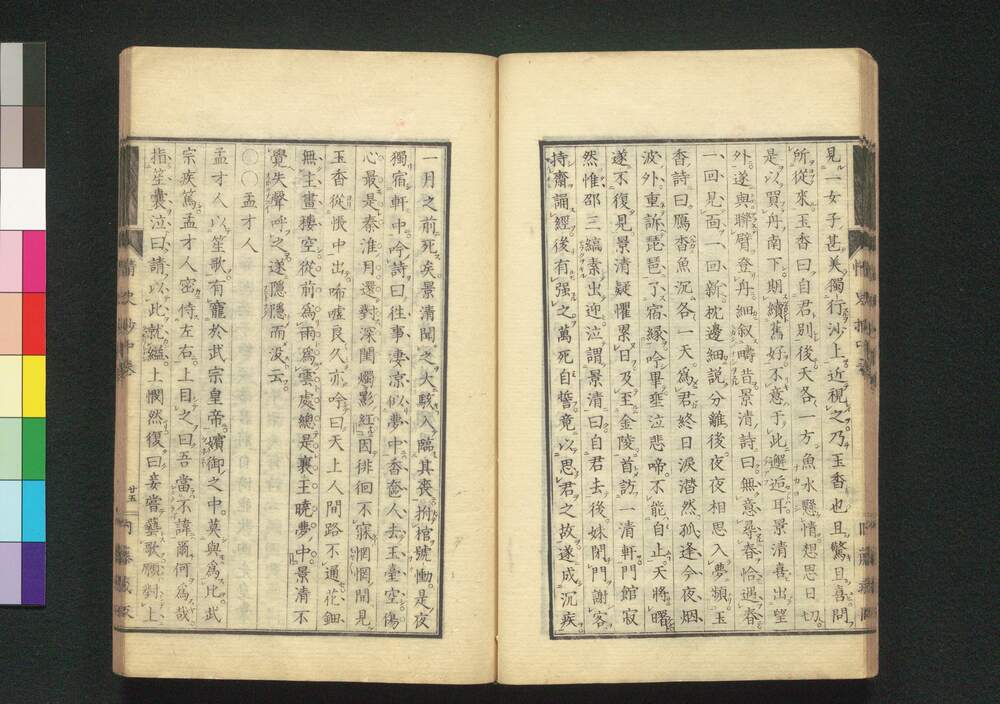 見一女子甚美獨行沙上近視之乃玉香也且驚且喜問
所從來玉香曰自君別後天各一方魚水懸情想思日切
是以買舟南下期續舊好不意于此邂逅耳景清喜出望
外遂與聯臂登舟細叙疇昔景清詩曰無意尋春恰遇春
一回見面一回新枕邊細説分離後夜夜相思入夢頻玉
香詩曰鴈杳魚沉各一天為君終日淚潸然孤逢今夜烟
波外重訴琵琶了宿緣吟畢垂泣悲啼不能自止天將曙
遂不復見景清疑懼累日及至金陵首訪一清軒門館寂
然惟邵三縞素出迎泣謂景清曰自君去後妹閉門謝客
持齋誦經後有强之萬死自誓竟以思君之故遂成沉疾
一月之前死矣景清聞之大駭入臨其喪拊棺號慟是夜
獨宿軒中吟詩曰往事淒凉似夢中香奩人去玉臺空傷
心最是秦淮月還對深閨燭影紅因徘徊不寐惘惘間見
玉香從悵中出唏噓良久亦吟曰天上人間路不通花鈿
無主畫樓空從前為雨為雲處總是襄王曉夢中景清不
覺失聲呼之遂隱隱而沒云
孟才人
孟才人以笙歌有寵於武宗皇帝嬪御之中莫與為比武
宗疾篤孟才人密侍左右上目之曰吾當不諱爾何為哉
指笙囊泣曰請以此就縊上憫然復曰妾嘗藝歌願對上
情史抄中卷
廿五